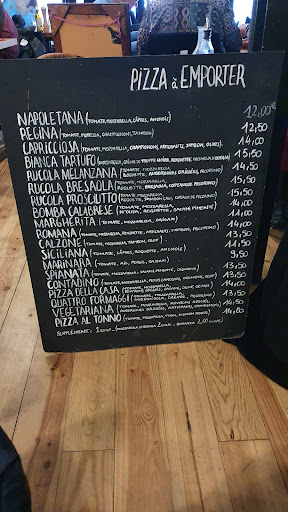 PIZZA à EMPORTER
NAPOLETANA (TOMATE, MOZZARELLA, CÂPRES, ANCHOIS) 12,00€
REGINA (TOMATE, MOZZARELLA, CHAMPIGNONS, JAMBON) 12,50
CAPRICCIOSA (TOMATE, MOZZARELLA, CHAMPIGNONS, ARTICHAUTS, JAMBON, OLIVES) 14,00
BIANCA TARTUFO (MOZZARELLA, CRÈME DE TRUFFE NOIRE, ROQUETTE, 15,50
RUCOLA MELANZANA (TOMATE, MOZZARELLA, ROQUETTE, AUBERGINES GRILLÉES, PECORINO) 14,50
RUCOLA BRESAOLA (TOMATE, MOZZARELLA, ROQUETTE, BRESAOLA, COPEAUX PECORINO) 15,50
RUCOLA PROSCIUTTO (TOMATE, MOZZARELLA, ROQUETTE, JAMBON CRU, COPEAUX DE PECORINO) 15,50
BOMBA CALABRESE (TOMATE, MOZZARELLA, N'DUJA, ROQUETTE, SALAMI PIMENTÉ) 14,00
MARGHERITA (TOMATE, MOZZARELLA, ORIGAN) 11,00
ROMANA (TOMATE, MOZZARELLA, ROQUETTE, ARTICHAUTS, JAMBON, PECORINO) 14,00
CALZONE (TOMATE, MOZZARELLA, JAMBON, OEUF) 13,50
SICILIANA (TOMATE, CÂPRES, ROQUETTE, ANCHOIS) 11,50
MARINARA (TOMATE, AIL, PERSIL, ORIGAN) 9,50
SPIANATA (TOMATE, MOZZARELLA, SALAMI PIMENTÉ, 13,50
CONTADINO (TOMATE, MOZZARELLA, 13,50
PIZZA DELLA CASA (TOMATE, MOZZARELLA, 14,00
QUATTRO FORMAGGI (TOMATE, MOZZARELLA, GORGONZOLA, PECORINO) 13,50
VEGETARIANA (TOMATE, MOZZARELLA, AUBERGINES GRILLÉES, ARTICHAUTS, 14,00
PIZZA AL TONNO (TOMATE, MOZZARELLA, THON, OIGNON 14,00
SUPPLÉMENTS: 1 EURO, 2 EUROS, BURRATA 2,50 EUROS